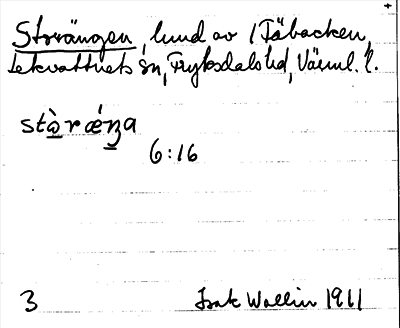 Storängen, lund av 1 Fäbacken,
Lekvattnets sn, Fryksdals hd, Värml. l.
stòrǽŋa
6:16
3 Isak Wallin 1911